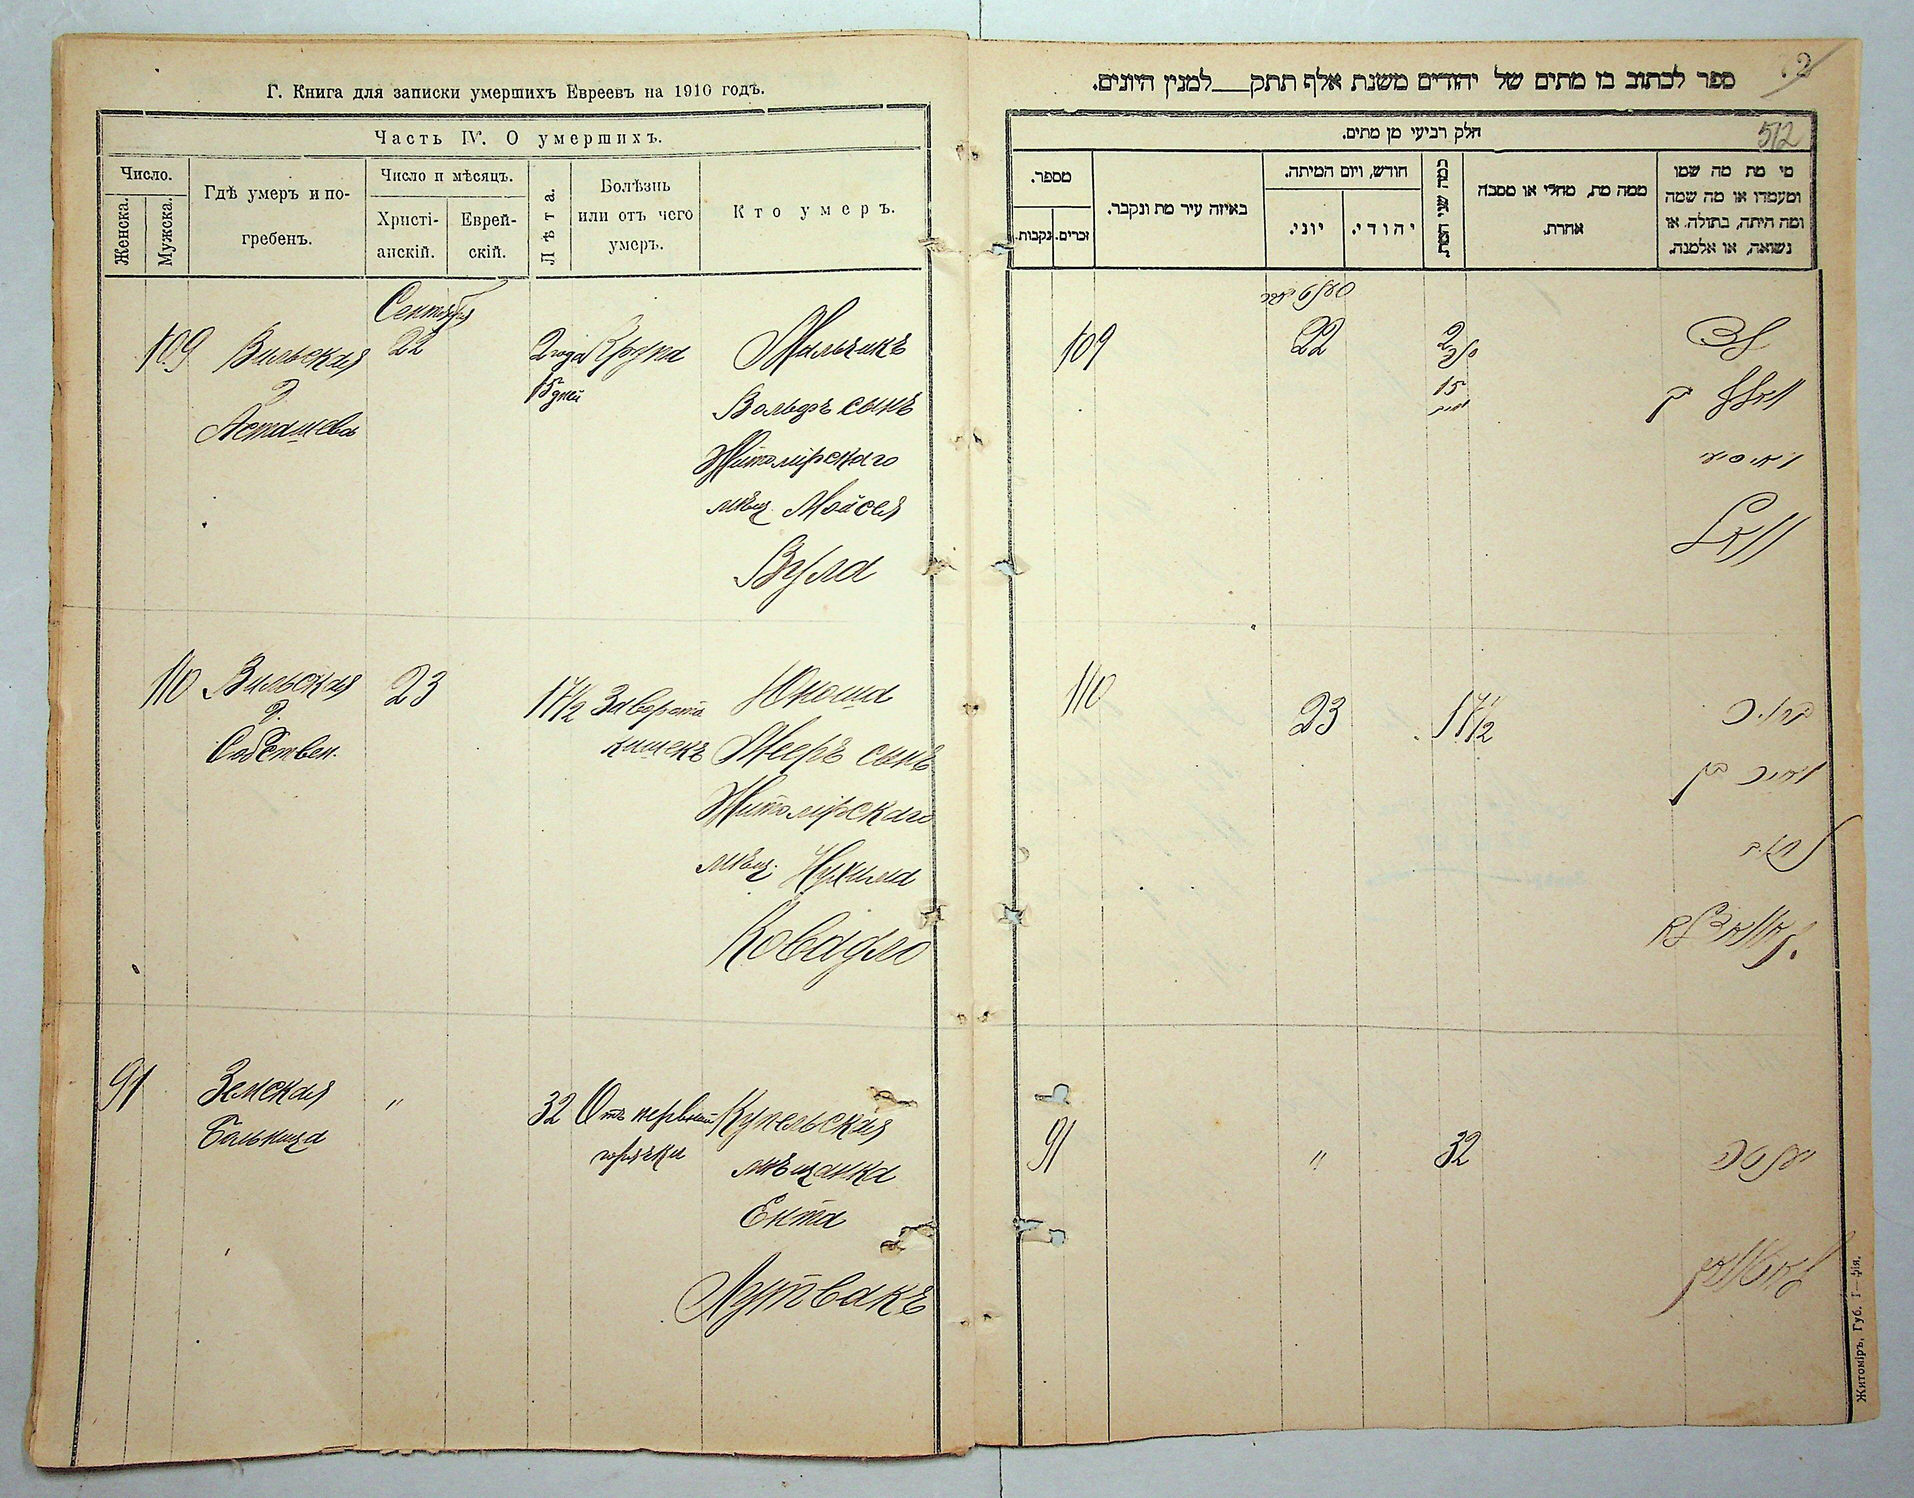 Г. Книга для записки умершихъ Евреевъ на 1910 годъ.
Часть IV. О умершихъ.
Число.
Женска.
Мужска.
Гдѣ умеръ и по-
гребенъ.
Число и мѣсяцъ.
Христі-
анскій.
Еврей-
скій.
Лѣта.
Болѣзнь
или отъ чего
умеръ.
Кто умеръ.
Сентября
109 Вильская 22 2 года Крупа Мальчикъ
15 дней
Асташова Вольфъ сынъ
Житомірскаго
мѣщ. Мойсея
Вула
110 Вильская 23 17½ Заворотъ Юноша
Собствен. кишекъ Мееръ сынъ
Житомірскаго
мѣщ. Нухима
Ковадло
91 Земская " 32 Отъ нервной Купельская
больница горячки мѣщанка
Ента
Лутвакъ
ספר לכתוב בו מתים של יהודים משנת אלף תתק למנין היונים.
512
חלק רביעי מן מתים.
מספר.
נקבות.
זכרים.
באיזה עיר מת ונקבר.
חודש, ויום המיתה.
יוני.
יהודי.
כמה שני המת.
ממה מת, מחלי או מסבה
אחרת.
מי מת מה שמו
ומעמדו או מה שמה
ומה היתה, בתולה, או
נשואה, או אלמנה.
109 22 2
15
110 23 17½
91 " 32
Житоміръ, Губ. Т—фія.